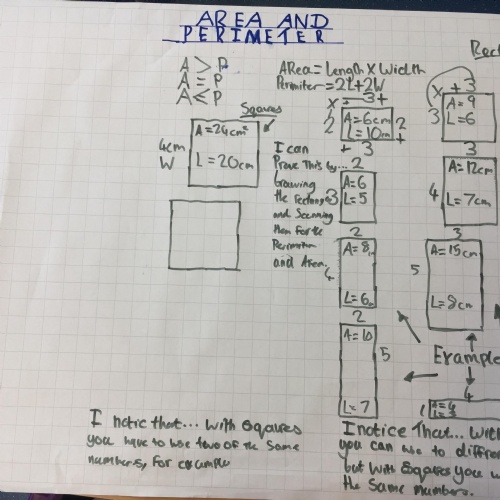 AREA AND
PERIMETER
A > P
A = P
A < P
Sqaures
A = 24cm²
L = 20cm
4cm
W
ARea = Length X Width
Perimiter = 2L+2W
X = 3 +
2
A = 6cm
L = 10cm
2
+
+ 3
I can
Prove This by...
drawing
the Rectangle
and
then For the
Perimiter
and Area.
2
3
A = 6
L = 5
2
A = 8
L = 6
2
A = 10
L = 7
5
X + 3
3
A = 9
L = 6
3
4
A = 12cm
L = 7cm
3
5
A = 15cm
L = 8cm
Example
4
1
I notice that... With Sqaures
you have to use two of the Same
numbers, For example
I notice That... With
you can use to
but With Sqaures you
the Same numbers.